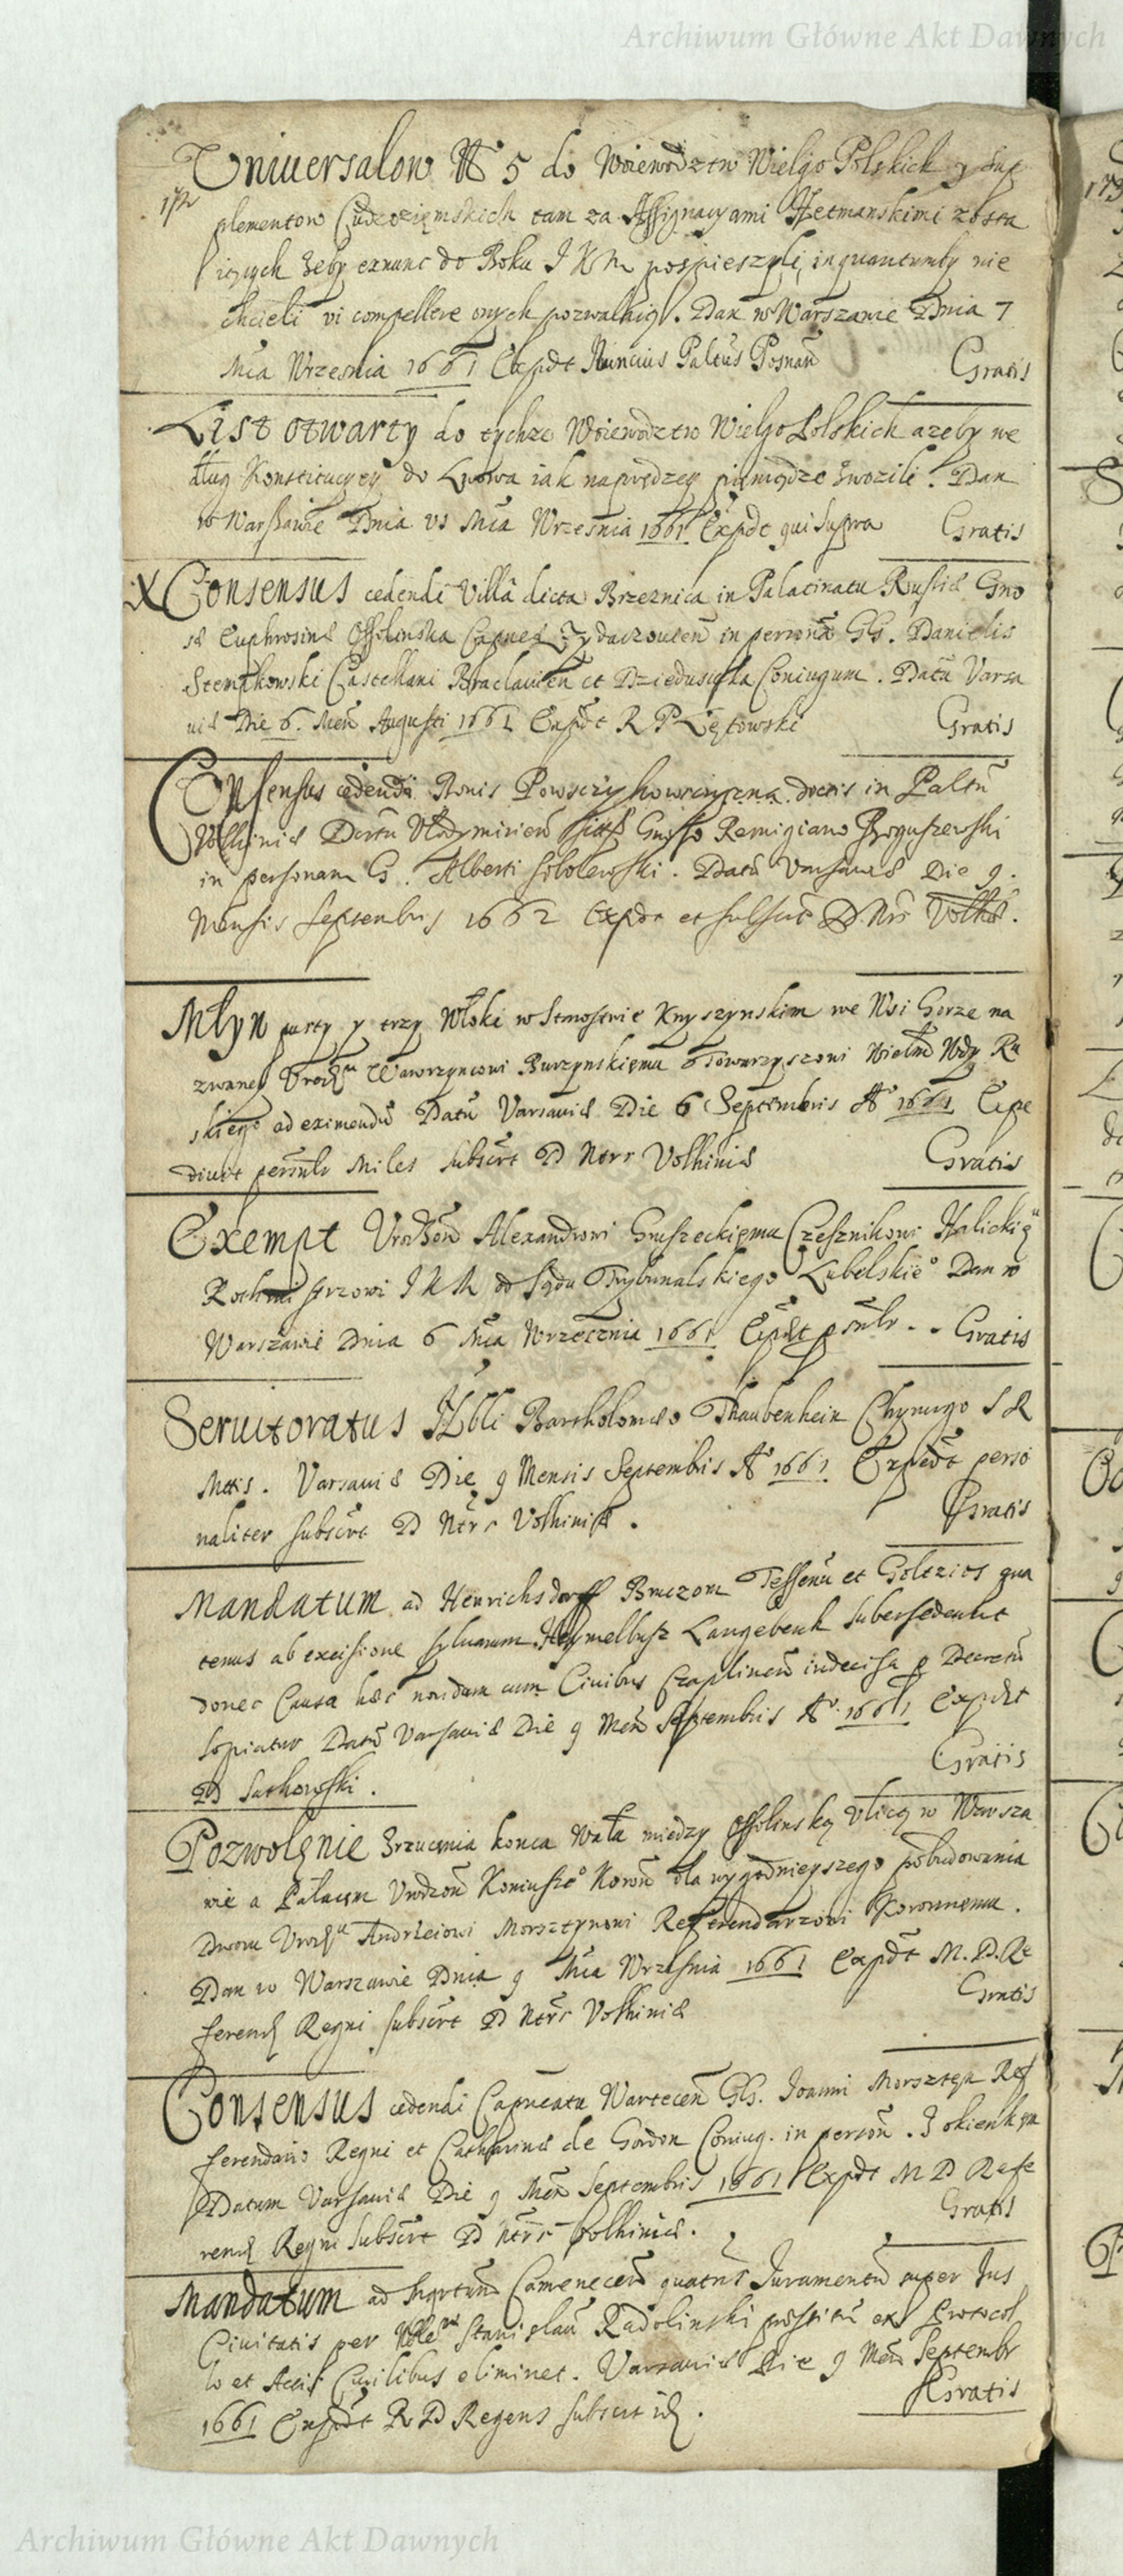 Archiwum Główne Akt Dawnych
Uniuersalow N 5 do Woiewodztw Wielgo Polskich y Sup
plementow Cudzoziemskich tam za Assignacyami Hetmanskimi zosta
iących żeby exnunc do Boku J K M pospieszyli, inquantumby nie
chcieli vi compellere onych pozwalaią. Dan w Warszawie Dnia 7
Mca Wrzesnia 1661 Expdt Nuncius Paltus Posnan Gratis
List otwarty do tychze Woiewodztw Wielgo Polskich azeby we
dług Konstitucyey do Lwowa iak naprędzey pieniądze zwozili. Dan
w Warszawie Dnia vs Mca Wrzesnia 1661 Expdt qui supra Gratis
X Consensus cedendi Villa dicta Brzeznica in Palatinatu Russiæ Gno
sæ Euphrosinæ Ossolinska Capneæ Zydaczouien in personā GG. Danielis
Stempkowski Castellani Braclauien et Dzieduszycka Coniugum. Datū Varsa
uiæ Die 6. Men Augusti 1661 Expdt R P Lętowski Gratis
Consensus cedendi Bonis dictis in Paltū
Volhiniæ Distū Vlodymirien Gnoso Remigiano Boguszewski
in personam G. Alberti Sobolewski. Datū Varsauiæ Die 9.
Mensis Septembris 1662 Expdt et subscrt D Nrs Volhiæ.
Młyn pusty y trzy Włoki w Starostwie Knyszynskim we Wsi Gorze na
zwaney Urodzu Wawrzyncowi Burzynskiemu Towarzyszowi Wielm Wdy Ru
skiego ad eximendū Datū Varsauiæ Die 6 Septembris Ao 1661 Expe
diuit personlr Miles subscrt D Ntrs Volhiniæ Gratis
Exempt Urodzon Alexandrowi Gruszeckiemu Czesznikowi Halickieu
Rothmistrzowi J K M od Sądu Trybunalskiego Lubelskieo Dan w
Warszawie Dnia 6 Mca Wrzesnia 1661 Expdt psnlr. . Gratis
Seruitoratus Nbli Bartholomæo Thaubenhein Chyrurgo S R
Mttis. Varsauiæ Die 9 Mensis Septembris Ao 1661 Expedt perso
naliter subscrt D Ntrs Volhiniæ. Gratis
Mandatum ad Henrichsdorff Tessenū et Goltzios qua
tenus ab excisione syluarum Langebenk supersedeant
donec Causa hæc nondum cum Ciuibus Czaplinen indecisa p Decretū
sopiatur Datū Varsauiæ Die 9 Men Septembris Ao 1661 Expdt
D Suchowski. Gratis
Pozwolęnie zrzucęnia konca wału między Ossolinską Vlicą w Warsza
wie a Pałacem Urodzon Koniuszeo Koron dla wygodnieyszego pobudowania
Dworu Urodzu Andrzeiowi Morsztynowi Referendarzowi Koronnemu.
Dan w Warszawie Dnia 9 Mca Wrzesnia 1661 Expdt M. D. Re
ferend Regni subscrt D Ntrs Volhiniæ Gratis
Consensus cedendi Capneatu Wartecen GG. Joanni Morsztyn Ref
ferendario Regni et Catharinæ de Gordon Coniug. in person.
Datum Varsauiæ Die 9 Men Septembris 1661 Expdt M D Refe
rend Regni subscrt D Ntrs Volhiniæ. Gratis
Mandatum ad Camenecen quatns Iuramentū super Ius
Ciuitatis per Stanislau Radolinski ex Protocol
lo et Actis Ciuilibus eliminet. Varsauiæ Die 9 Men Septembr
1661 Expdt R D Regens subscrt id. Gratis
Archiwum Główne Akt Dawnych